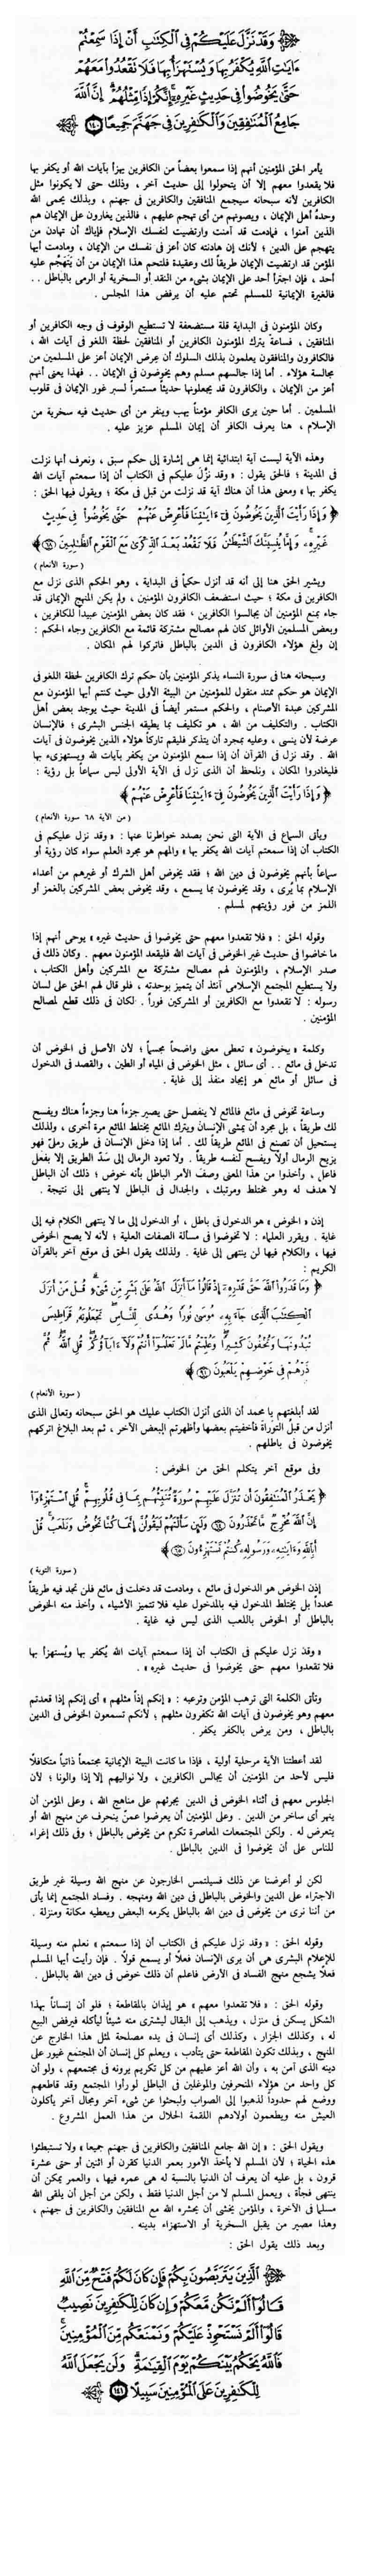 وَقَدْ نَزَّلَ عَلَيْكُمْ فِى ٱلْكِتَٰبِ أَنْ إِذَا سَمِعْتُمْ
ءَايَٰتِ ٱللَّهِ يُكْفَرُ بِهَا وَيُسْتَهْزَأُ بِهَا فَلَا تَقْعُدُوا۟ مَعَهُمْ
حَتَّىٰ يَخُوضُوا۟ فِى حَدِيثٍ غَيْرِهِۦٓ إِنَّكُمْ إِذًا مِّثْلُهُمْ إِنَّ ٱللَّهَ
جَامِعُ ٱلْمُنَٰفِقِينَ وَٱلْكَٰفِرِينَ فِى جَهَنَّمَ جَمِيعًا ١٤٠
يأمر الحق المؤمنين أنهم إذا سمعوا بعضاً من الكافرين يهزأ بآيات الله أو يكفر بها
فلا يقعدوا معهم إلا أن يتحولوا إلى حديث آخر ، وذلك حتى لا يكونوا مثل
الكافرين لأنه سبحانه سيجمع المنافقين والكافرين فى جهنم ، وبذلك يحمى الله
وحدة أهل الإيمان ، ويصونهم من أى تهجم عليهم ، فالذين يغارون على الإيمان هم
الذين آمنوا ، فمادمت قد آمنت وارتضيت لنفسك الإسلام فإياك أن تهادن من
يتهجم على الدين ؛ لأنك إن هادنته كان أعز فى نفسك من الإيمان ، ومادمت أيها
المؤمن قد ارتضيت الإيمان طريقاً لك وعقيدة فلتحم هذا الإيمان من أن يتهجّم عليه
أحد ، فإن اجترأ أحد على الإيمان بشىء من النقد أو السخرية أو الرمى بالباطل . .
فالغيرة الإيمانية للمسلم تحتم عليه أن يرفض هذا المجلس .
وكان المؤمنون فى البداية قلة مستضعفة لا تستطيع الوقوف فى وجه الكافرين أو
المنافقين ، فساعة يترك المؤمنون الكافرين أو المنافقين لحظة اللغو فى آيات الله ،
فالكافرون والمنافقون يعلمون بذلك السلوك أن عِرض الإيمان أعز على المسلمين من
مجالسة هؤلاء . أما إذا جالسهم مسلم وهم يخوضون فى الإيمان . . فهذا يعنى أنهم
أعز من الإيمان ، والكافرون قد يجعلونها حديثاً مستمراً لسبر غور الإيمان فى قلوب
المسلمين . أما حين يرى الكافر مؤمناً يهب وينفر من أى حديث فيه سخرية من
الإسلام ، هنا يعرف الكافر أن إيمان المسلم عزيز عليه .
وهذه الآية ليست آية ابتدائية إنما هى إشارة إلى حكم سبق ، ونعرف أنها نزلت
فى المدينة ؛ فالحق يقول : « وقد نزَّل عليكم فى الكتاب أن إذا سمعتم آيات الله
يكفر بها » ومعنى هذا أن هناك آية قد نزلت من قبل فى مكة ؛ ويقول فيها الحق :
﴿ وَإِذَا رَأَيْتَ ٱلَّذِينَ يَخُوضُونَ فِىٓ ءَايَٰتِنَا فَأَعْرِضْ عَنْهُمْ حَتَّىٰ يَخُوضُوا۟ فِى حَدِيثٍ
غَيْرِهِۦ وَإِمَّا يُنسِيَنَّكَ ٱلشَّيْطَٰنُ فَلَا تَقْعُدْ بَعْدَ ٱلذِّكْرَىٰ مَعَ ٱلْقَوْمِ ٱلظَّٰلِمِينَ ٦٨ ﴾
( سورة الأنعام )
ويشير الحق هنا إلى أنه قد أنزل حكماً فى البداية ، وهو الحكم الذى نزل مع
الكافرين فى مكة ؛ حيث استضعف الكافرون المؤمنين ، ولم يكن المنهج الإيمانى قد
جاء بمنع المؤمنين أن يجالسوا الكافرين ، فقد كان بعض المؤمنين عبيداً للكافرين ،
وبعض المسلمين الأوائل كان لهم مصالح مشتركة قائمة مع الكافرين وجاء الحكم :
إن ولغ هؤلاء الكافرون فى الدين بالباطل فاتركوا لهم المكان .
وسبحانه هنا فى سورة النساء يذكر المؤمنين بأن حكم ترك الكافرين لحظة اللغو فى
الإيمان هو حكم ممتد منقول للمؤمنين من البيئة الأولى حيث كنتم أيها المؤمنون مع
المشركين عبدة الأصنام ، والحكم مستمر أيضاً فى المدينة حيث يوجد بعض أهل
الكتاب . والتكليف من الله ، هو تكليف بما يطيقه الجنس البشرى ؛ فالإنسان
عرضة لأن ينسى ، وعليه بمجرد أن يتذكر فليقم تاركاً هؤلاء الذين يخوضون فى آيات
الله . وقد نزل فى القرآن أن إذا سمع المؤمنون من يكفر بآيات لله ويستهزىء بها
فليغادروا المكان ، ونلحظ أن الذى نزل فى الآية الأولى ليس سماعاً بل رؤية :
﴿ وَإِذَا رَأَيْتَ ٱلَّذِينَ يَخُوضُونَ فِىٓ ءَايَٰتِنَا فَأَعْرِضْ عَنْهُمْ ﴾
( من الآية ٦٨ سورة الأنعام )
ويأتى السماع فى الآية التى نحن بصدد خواطرنا عنها : « وقد نزل عليكم فى
الكتاب أن إذا سمعتم آيات الله يكفر بها » والمهم هو مجرد العلم سواء كان رؤية أو
سماعاً بأنهم يخوضون فى دين الله ؛ فقد يخوض أهل الشرك أو غيرهم من أعداء
الإسلام بما يُرى ، وقد يخوضون بما يسمع ، وقد يخوض بعض المشركين بالغمز أو
اللمز من فور رؤيتهم لمسلم .
وقوله الحق : « فلا تقعدوا معهم حتى يخوضوا فى حديث غيره » يوحى أنهم إذا
ما خاضوا فى حديث غير الخوض فى آيات الله فليقعد المؤمنون معهم . وكان ذلك فى
صدر الإسلام ، والمؤمنون لهم مصالح مشتركة مع المشركين وأهل الكتاب ،
ولا يستطيع المجتمع الإسلامى آنئذ أن يتميز بوحدته ، فلو قال لهم الحق على لسان
رسوله : لا تقعدوا مع الكافرين أو المشركين فوراً . لكان فى ذلك قطع لمصالح
المؤمنين .
وكلمة « يخوضون » تعطى معنى واضحاً مجسماً ؛ لأن الأصل فى الخوض أن
تدخل فى مائع . . أى سائل ، مثل الخوض فى المياه أو الطين ، والقصد فى الدخول
فى سائل أو مائع هو إيجاد منفذ إلى غاية .
وساعة تخوض فى مائع فالمائع لا ينفصل حتى يصير جزءاً هنا وجزءاً هناك ويفسح
لك طريقاً ، بل مجرد أن يمشى الإنسان ويترك المائع يختلط المائع مرة أخرى ، ولذلك
يستحيل أن تصنع فى المائع طريقاً لك . أما إذا دخل الإنسان فى طريق رملىّ فهو
يزيح الرمال أولاً ويفسح لنفسه طريقاً . ولا تعود الرمال إلى سَدّ الطريق إلا بفعل
فاعل ، وأخذوا من هذا المعنى وصفَ الأمر الباطل بأنه خوض ؛ ذلك أن الباطل
لا هدف له وهو مختلط ومرتبك ، والجدال فى الباطل لا ينتهى إلى نتيجة .
إذن « الخوض » هو الدخول فى باطل ، أو الدخول إلى ما لا ينتهى الكلام فيه إلى
غاية . ويقرر العلماء : لا تخوضوا فى مسألة الصفات العلية ؛ لأنه لا يصح الخوض
فيها ، والكلام فيها لن ينتهى إلى غاية . ولذلك يقول الحق فى موقع آخر بالقرآن
الكريم :
﴿ وَمَا قَدَرُوا۟ ٱللَّهَ حَقَّ قَدْرِهِۦٓ إِذْ قَالُوا۟ مَآ أَنزَلَ ٱللَّهُ عَلَىٰ بَشَرٍ مِّن شَىْءٍ قُلْ مَنْ أَنزَلَ
ٱلْكِتَٰبَ ٱلَّذِى جَآءَ بِهِۦ مُوسَىٰ نُورًا وَهُدًى لِّلنَّاسِ تَجْعَلُونَهُۥ قَرَاطِيسَ
تُبْدُونَهَا وَتُخْفُونَ كَثِيرًا وَعُلِّمْتُم مَّا لَمْ تَعْلَمُوٓا۟ أَنتُمْ وَلَآ ءَابَآؤُكُمْ قُلِ ٱللَّهُ ثُمَّ
ذَرْهُمْ فِى خَوْضِهِمْ يَلْعَبُونَ ٩١ ﴾
( سورة الأنعام )
لقد أبلغتهم يا محمد أن الذى أنزل الكتاب عليك هو الحق سبحانه وتعالى الذى
أنزل من قبل التوراة فأخفيتم بعضها وأظهرتم البعض الآخر ، ثم بعد البلاغ اتركهم
يخوضون فى باطلهم .
وفى موقع آخر يتكلم الحق عن الخوض :
﴿ يَحْذَرُ ٱلْمُنَٰفِقُونَ أَن تُنَزَّلَ عَلَيْهِمْ سُورَةٌ تُنَبِّئُهُم بِمَا فِى قُلُوبِهِمْ قُلِ ٱسْتَهْزِءُوٓا۟
إِنَّ ٱللَّهَ مُخْرِجٌ مَّا تَحْذَرُونَ ٦٤ وَلَئِن سَأَلْتَهُمْ لَيَقُولُنَّ إِنَّمَا كُنَّا نَخُوضُ وَنَلْعَبُ قُلْ
أَبِٱللَّهِ وَءَايَٰتِهِۦ وَرَسُولِهِۦ كُنتُمْ تَسْتَهْزِءُونَ ٦٥ ﴾
( سورة التوبة )
إذن الخوض هو الدخول فى مائع ، ومادمت قد دخلت فى مائع فلن تجد فيه طريقاً
محدداً بل يختلط المدخول فيه بالمدخول عليه فلا تتميز الأشياء ، وأخذ منه الخوض
بالباطل أو الخوض باللعب الذى ليس فيه غاية .
« وقد نزل عليكم فى الكتاب أن إذا سمعتم آيات الله يُكفر بها ويُستهزأ بها
فلا تقعدوا معهم حتى يخوضوا فى حديث غيره » .
وتأتى الكلمة التى ترهب المؤمن وترعبه : « إنكم إذاً مثلهم » أى إنكم إذا قعدتم
معهم وهم يخوضون فى آيات الله تكفرون مثلهم ؛ لأنكم تسمعون الخوض فى الدين
بالباطل ، ومن يرض بالكفر يكفر .
لقد أعطتنا الآية مرحلية أولية ، فإذا ما كانت البيئة الإيمانية مجتمعاً ذاتياً متكافلاً
فليس لأحد من المؤمنين أن يجالس الكافرين ، ولا نواليهم إلا إذا والونا ؛ لأن
الجلوس معهم فى أثناء الخوض فى الدين يجرئهم على مناهج الله ، وعلى المؤمن أن
ينهر أى ساخر من الدين . وعلى المؤمنين أن يعرضوا عمن ينحرف عن منهج الله أو
يتعرض له . ولكن المجتمعات المعاصرة تكرم من يخوض بالباطل ؛ وفى ذلك إغراء
للناس على أن يخوضوا فى الدين بالباطل .
لكن لو أعرضنا عن ذلك فسيلتمس الخارجون عن منهج الله وسيلة غير طريق
الاجتراء على الدين والخوض بالباطل فى دين الله ومنهجه . وفساد المجتمع إنما يأتى
من أننا نرى من يخوض فى دين الله بالباطل يكرمه البعض ويعطيه مكانة ومنزلة .
وقوله الحق : « وقد نزل عليكم فى الكتاب أن إذا سمعتم » نعلم منه وسيلة
للإعلام البشرى هى أن يرى الإنسان فعلاً أو يسمع قولاً . فإن رأيت أيها المسلم
فعلاً يشجع منهج الفساد فى الأرض فاعلم أن ذلك خوض فى دين الله بالباطل .
وقوله الحق : « فلا تقعدوا معهم » هو إيذان بالمقاطعة ؛ فلو أن إنساناً بهذا
الشكل يسكن فى منزل ، ويذهب إلى البقال ليشترى منه شيئاً ليأكله فيرفض البيع
له ، وكذلك الجزار ، وكذلك أى إنسان فى يده مصلحة لمثل هذا الخارج عن
المنهج ، وبذلك تكون المقاطعة حتى يتأدب ، ويعلم كل إنسان أن المجتمع غيور على
دينه الذى آمن به ، وأن الله أعز عليهم من كل تكريم يرونه فى مجتمعهم ، ولو أن
كل واحد من هؤلاء المنحرفين والموغلين فى الباطل لو رأوا المجتمع وقد قاطعهم
ووضع لهم حدوداً لذهبوا إلى الصواب ولبحثوا عن شىء آخر ومجال آخر يأكلون
العيش منه ويطعمون أولادهم اللقمة الحلال من هذا العمل المشروع .
ويقول الحق : « إن الله جامع المنافقين والكافرين فى جهنم جميعا » ولا تستبطئوا
هذه الحياة ؛ لأن المسلم لا يأخذ الأمور بعمر الدنيا كقرن أو اثنين أو حتى عشرة
قرون ، بل عليه أن يعرف أن الدنيا بالنسبة له هى عمره فيها ، والعمر يمكن أن
ينتهى فجأة ، ويعمل المسلم لا من أجل الدنيا فقط ، ولكن من أجل أن يلقى الله
مسلماً فى الآخرة ، والمؤمن يخشى أن يحشره الله مع المنافقين والكافرين فى جهنم ،
وهذا مصير من يقبل السخرية أو الاستهزاء بدينه .
وبعد ذلك يقول الحق :
ٱلَّذِينَ يَتَرَبَّصُونَ بِكُمْ فَإِن كَانَ لَكُمْ فَتْحٌ مِّنَ ٱللَّهِ
قَالُوٓا۟ أَلَمْ نَكُن مَّعَكُمْ وَإِن كَانَ لِلْكَٰفِرِينَ نَصِيبٌ
قَالُوٓا۟ أَلَمْ نَسْتَحْوِذْ عَلَيْكُمْ وَنَمْنَعْكُم مِّنَ ٱلْمُؤْمِنِينَ
فَٱللَّهُ يَحْكُمُ بَيْنَكُمْ يَوْمَ ٱلْقِيَٰمَةِ وَلَن يَجْعَلَ ٱللَّهُ
لِلْكَٰفِرِينَ عَلَى ٱلْمُؤْمِنِينَ سَبِيلًا ١٤١